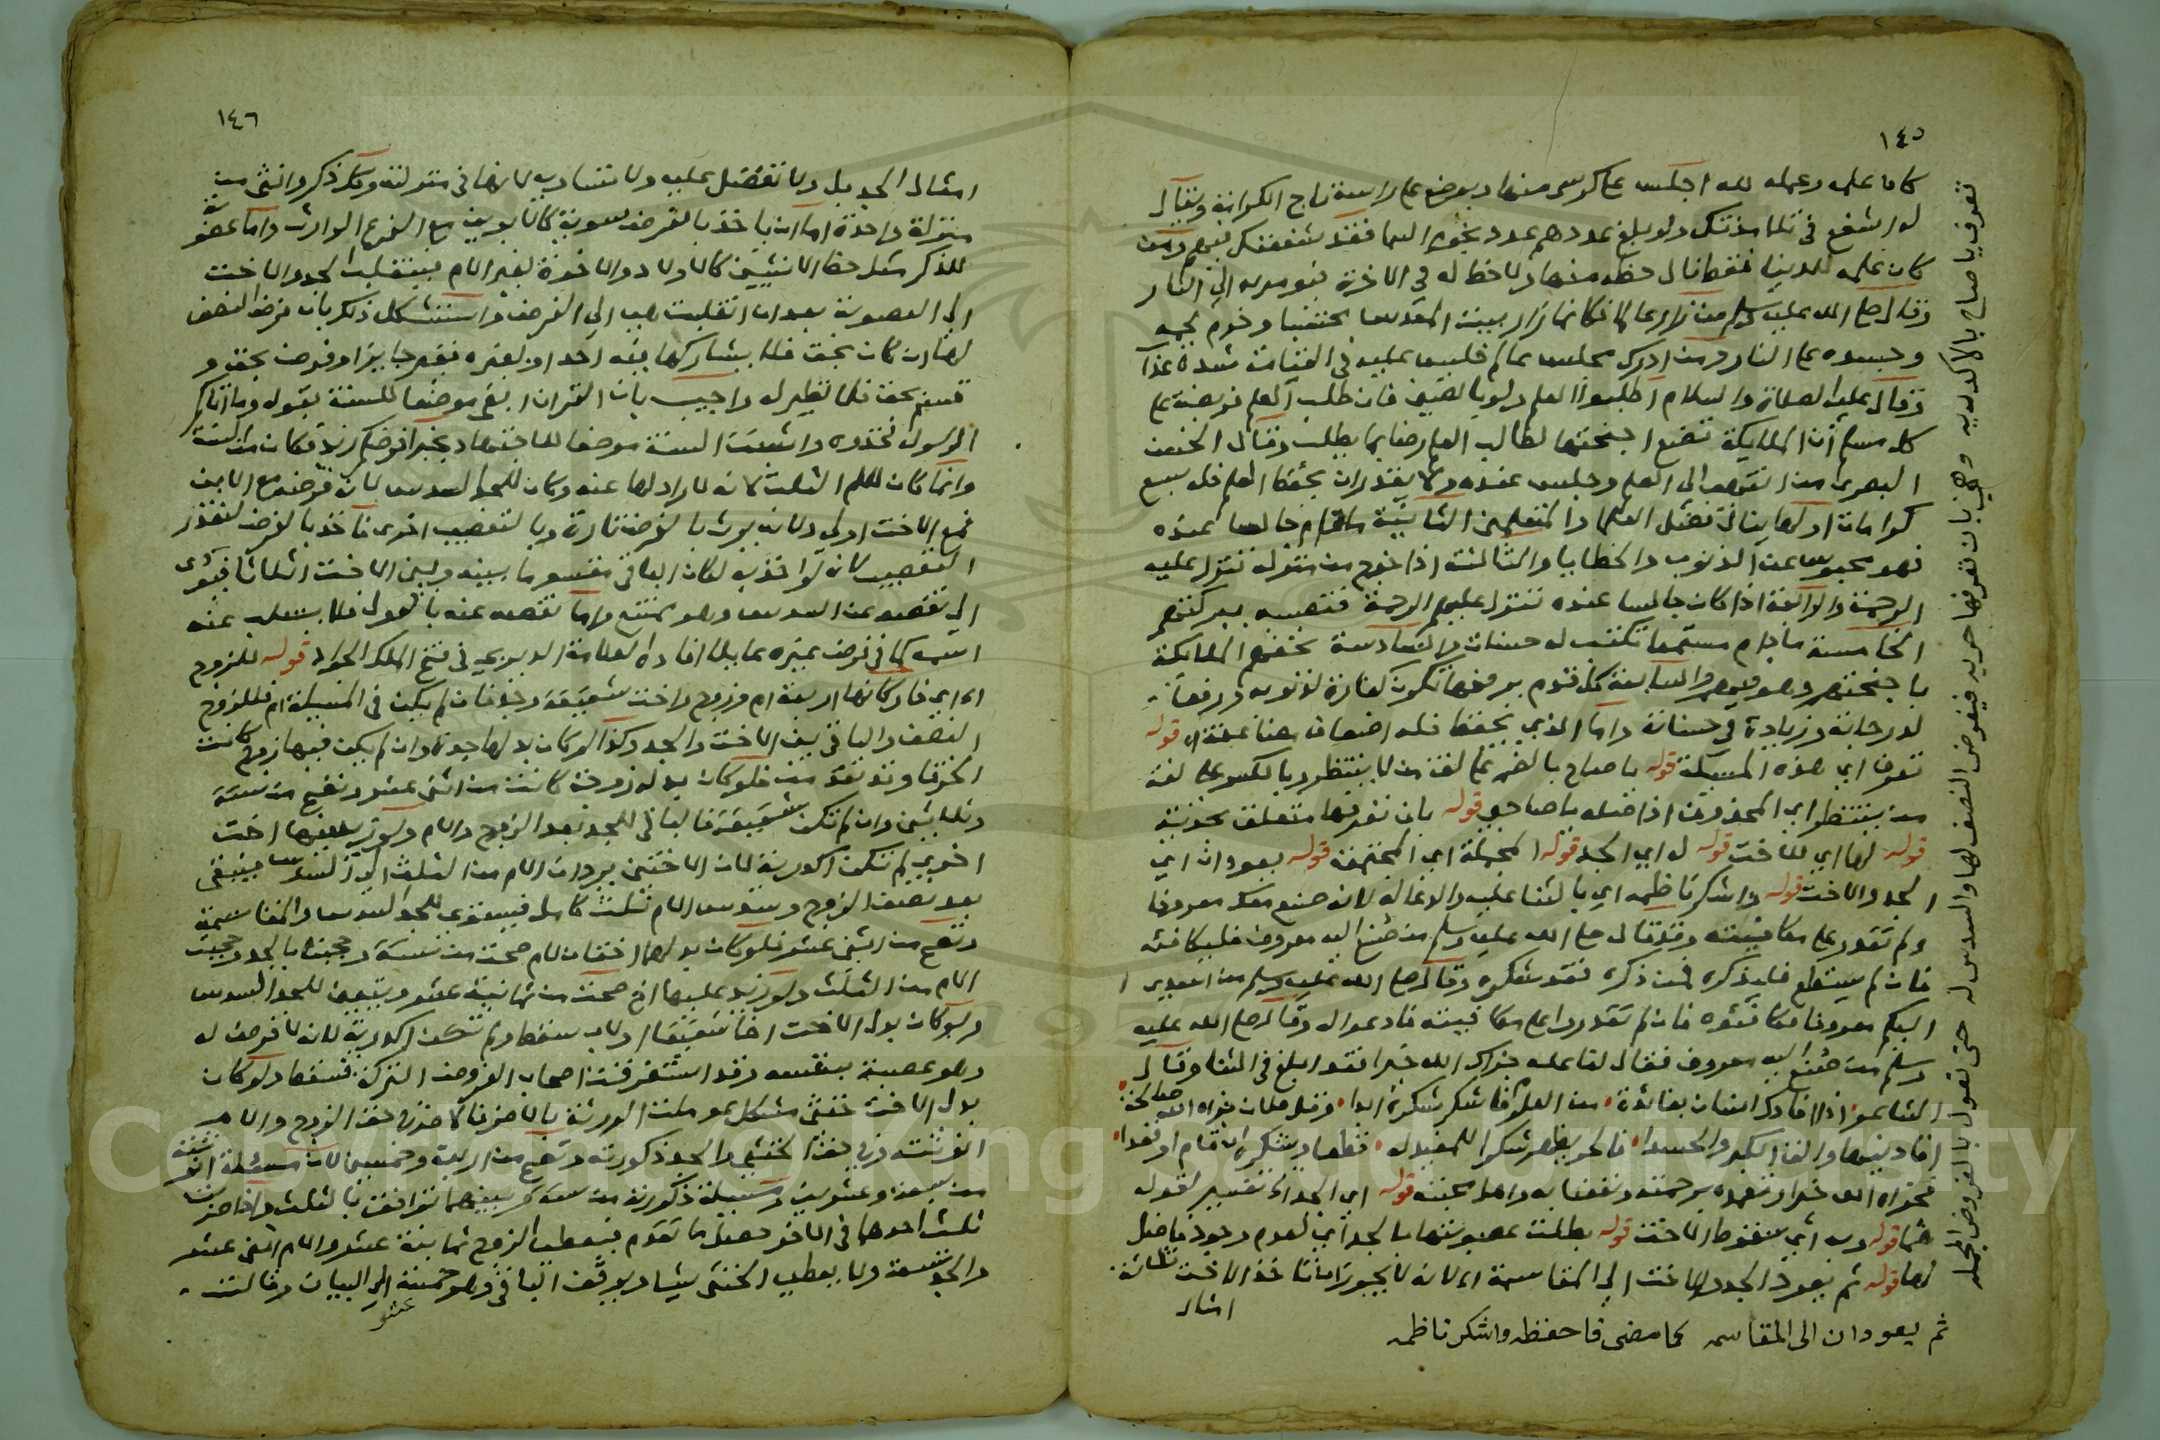 ١٤٥
كاما علمه وعمله لله اجلس على كرسى منها ويوضع على راسه تاج الكرامة ويقال
له اشفع فى تلامذتك ولو بلغ عددهم عدد نجوم السما فقد شفعتك فيهم ومن
كان علمه للدنيا فقط نال حظه منها ولا حظ له فى الاخرة فيومر به الى النار
وقال صلى الله عليه وسلم من زار عالما فكانما زار بيت المقدس محتسبا وحرم لحمه
وجسده على النار ومن ادرك مجلس عالم فليس عليه فى القيامة شدة عذا
وقال عليه الصلاة والسلام اطلبوا العلم ولو بالصين فان طلب العلم فريضة على
كل مسلم ان الملايكة تضع اجنحتها لطالب العلم رضا بما يطلب وقال الحسن
البصرى من انتهى الى العلم وجلس عنده ولا يقدر ان يحفظ العلم فله سبع
كرامات اولها ينال فضل العلما والمتعلمين الثانية مادام جالسا عنده
فهو محبوس عن الذنوب والخطايا والثالثة اذا خرج من منزله تنزل عليه
الرحمة والرابعة اذا كان جالسا عنده تنزل عليهم الرحمة فتصيبه ببركتهم
الخامسة مادام مستمعا تكتب له حسنات والسادسة تحفهم الملايكة
باجنحتهم وهو فيهم والسابعة كل قدم يرفعها تكون كفارة لذنوبه ورفعا
لدرجاته وزيادة فى حسناته واما الذي يحفظ فله اضعاف مضاعفة اه قوله
تعرف اي هذه المسيلة قوله يا صاح بالضم على لغة من لا ينتظر وبالكسر على لغة
من ينتظر اي المحذوف اذ اصله يا صاحبي قوله بان تعرفها متعلق بحذيتة
قوله لها اي للاخت قوله له اي الجد قوله المجملة اي المجتمعة قوله يعودان اي
الجد والاخت قوله واشكر ناظمه اي بالثنا عليه والدعا له لانه صنع معك معروفا
ولم تقدر على مكافيته وقد قال صلى الله عليه وسلم من صنع اليه معروف فليكافئه
فان لم يستطع فليذكره فمن ذكره فقد شكره وقال صلى الله عليه وسلم من اسدى ا
اليكم معروفا فكافئوه فان لم تقدروا على مكافيته فادعوا له وقال صلى الله عليه
وسلم من صنع اليه معروف فقال لفاعله جزاك الله خيرا فقد ابلغ فى الثنا وقال
الشاعر اذا افادك انسان بفائدة من العلوم فاشكر شكره ابدا وقل فلان جزاه الله صالحة
افادنيها والغ الكبر والحسدا فالحر يظهر شكرا للمفيد له
فجزاه الله خيرا وتغمده برحمته ونفعنا به واهل محبته قوله اي الجد الخ تفسير لقوله
هما قوله وبه اي سقوط الاخت قوله بطلت عصوبتها بالجد اي لعدم وجود فاضل
لها قوله ثم يعود الجد والاخت الى المقاسمة اه لانه لا يجوز ان تاخذ الاخت ثلاثة
امثال
ثم يعودان الى المقاسمه كما مضى فاحفظه واشكر ناظمه
تعرف يا صاح بالاكدريه وهي بان تعرفها حريه فيفرض النصف لها والسدس له حتى تعول بالفروض المجمله
١٤٦
امثال الجد بل ولا تفضل عليه ولا تساويه لانها فى منزلته وكل ذكر وانثى من
منزلة واحدة اما ان ياخذ بالفرض سوية كالابوين مع الفرع الوارث واما عصوبة
للذكر مثل حظ الانثيين كالاولاد والاخوة لغير الام فينقلب الجد والاخت
الى العصوبة بعد ان انقلبت هي الى الفرض واستشكل ذلك بان فرض النصف
لها ان كان بحق فلا يشاركها فيه احد او بغيره فغير جايز او فرض بحق و
قسم بحق فلا نظير له واجيب بان القران ابقى موضعا للسنة بقوله وما اتاكم
الرسول فخذوه واثبتت السنة موضعا للاجتهاد بخبر افرضكم زيد فكان من السنة
وانما كان للام الثلث لانه لا راد لها عنه وكان للجد السدس لانه فرضه مع الابن
فمع الاخت اولى ولانه يرث بالفرض تارة وبالتعصيب اخرى فاخذ بالفرض لتعذر
التعصيب لانه لو اخذ به لكان الباقى مقسوما بينه وبين الاخت اثلاثا فيؤدى
الى نقصه عن السدس وهو ممتنع واما نقصه عنه بالعول فلا يسلب عنه
اسمه كما فى فرض غيره عايلا افاده العلامة الديربي فى فتح الملك الجواد قوله للزوج
اه اي فاركانها اربعة ام وزوج واخت شقيقة وجد فان لم يكن فى المسيلة ام فللزوج
النصف والباقى بين الاخت والجد وكذا لو كان بدلها جدة وان لم يكن فيها زوج كانت
الخرقا وقد تقدمت فلو كان بدله زوجة كانت من اثنى عشر وتصح من ستة
وثلاثين وان لم تكن شقيقة فالباقى للجد بعد الزوج والام ولو زيد عليها اخت
اخرى لم تكن اكدرية لان الاختين يردان الام من الثلث الى السدس فيبقى
بعد نصف الزوج وسدس الام ثلث كامل فيستوي للجد السدس والمقاسمة
وتصح من اثنى عشر فلو كان بدلهما اختان لام صحت من ستة وحجبتا بالجد وحجبت
الام من الثلث ولو زيد عليها اخ صحت من ثمانية عشر ويتعين للجد السدس
ولو كان بدل الاخت اخا شقيقا او لاب سقط ولم تكن اكدرية لانه لا فرض له
وهو عصبة بنفسه وقد استغرقت اصحاب الفروض التركة فسقط ولو كان
بدل الاخت خنثى مشكل عوملت الورثة بالاضر فالاضر فى حق الزوج والام
انوثته وفى حق الخنثى والجد ذكورته وتصح من اربعة وخمسين لان مسئلة انوثته
من سبعة وعشرين ومسيلة ذكورته من ستة وبينهما توافق بالثلث والحاصل من ضرب
ثلث احدهما فى الاخر حصل ما تقدم فيعطى الزوج ثمانية عشر والام اثنى عشر
والجد تسعة ولا يعطى الخنثى شيا ويوقف الباقى وهو خمسة عشر الى البيان وقالت